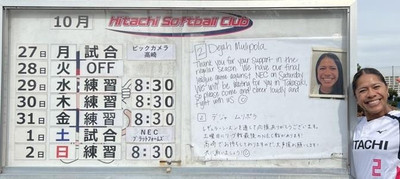 10月 Hitachi Softball Club
27 月 試合 ビックカメラ 高崎
28 火 OFF
29 水 練習 8:30
30 木 練習 8:30
31 金 練習 8:30
1 土 試合 NEC プラットフォームズ
2 日 練習 8:30
[2] Dejah Mulipola
Thank you for your support in the
regular season. We have our final
league game against NEC on Saturday.
We will be waiting for you in Takasaki,
so please come and cheer loudly and
fight with us ☺
[2] デジャ ムリポラ
レギュラーシーズンを通して応援ありがとうございました。
HITACHI
2